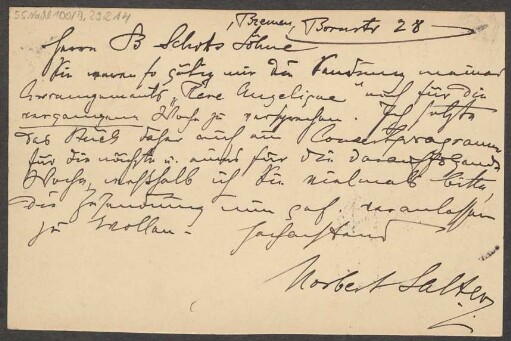 55 Nachl 100/B, 29214
Bremen, Bornstr 28
Herrn B Schotts Söhne
Sie waren so gütig mir die Sendung meines
Arrangements "Rêve Angelique" noch für die
vergangene Woche zu versprechen. Ich setzte
das Stück daher auch am Concertprogramm
für die nächste u. auch für die darauffolgende
Woche, weshalb ich Sie vielmals bitte,
die Zusendung nun gefl. veranlassen
zu wollen. Hochachtend
Norbert Salter